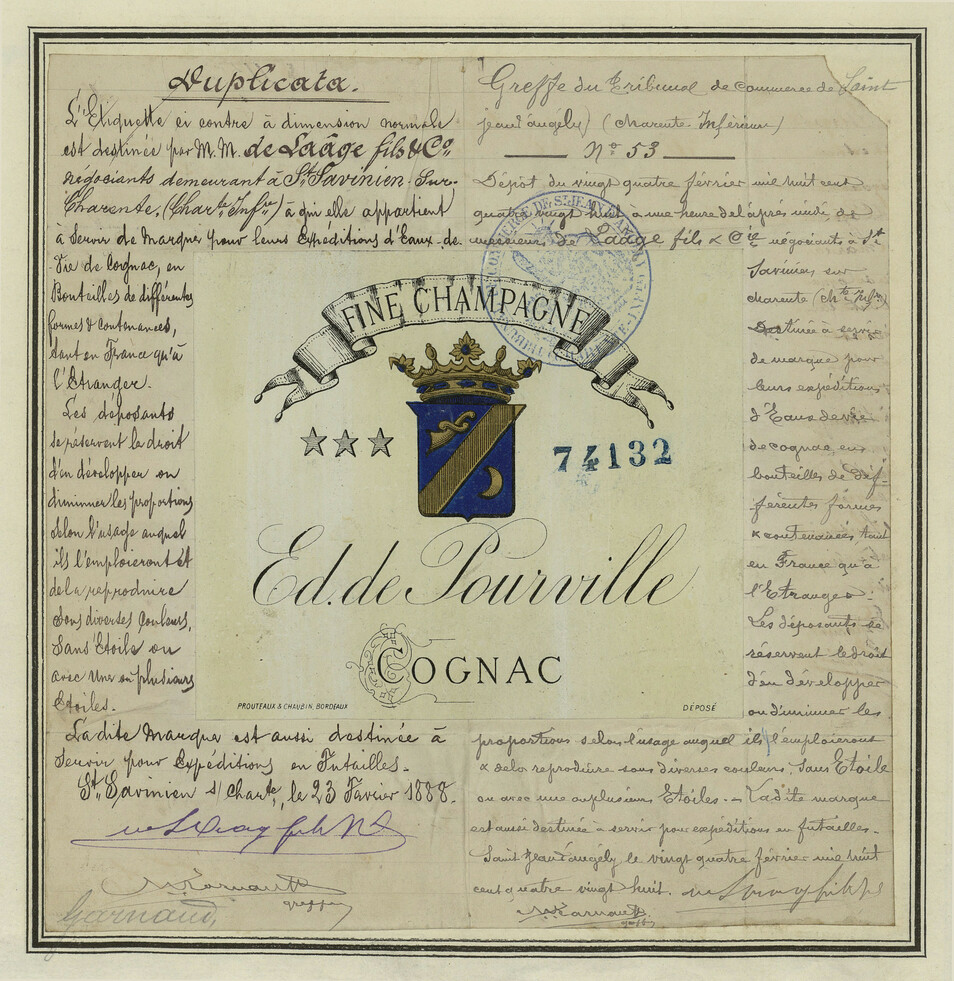 Duplicata.
L'Etiquette ci contre à dimension normale
est destinée par M.M. de Laâge fils & Co.
négociants demeurant à St Savinien-Sur-
Charente, (Charte Infre) à qui elle appartient
à Servir de Marque pour leurs Expéditions d'Eaux-de-
Vie de Cognac, en
Bouteilles de différentes
formes & contenances,
tant en France qu'à
l'Etranger.
Les déposants
se réservent le droit
d'en développer ou
diminuer les proportions
selon l'usage auquel
ils l'emploieront et
de la reproduire
sous diverses couleurs,
Sans Etoile ou
avec Une ou plusieurs
Etoiles.
La dite Marque est aussi destinée à
Servir pour Expéditions en Futailles.
St Savinien s/ Charte, le 23 Février 1888.
greffier
Garnaud,
Greffe du Tribunal de Commerce de Saint
jean d'angély) (Charente-Inférieure)
No 53
Dépôt du vingt quatre février mil huit cent
quatre vingt huit à une heure de l'après midi, de
messieurs de Laâge fils & Cie négociants à St
Savinien sur
charente (chte Infre)
Destinée à servir
de marque pour
leurs expéditions
d'Eaux de vie
de cognac, en
bouteilles de dif-
férentes formes
& contenances, tant
en France qu'à
l'Etranger.
Les déposants se
réservent le droit
d'en développer
ou diminuer les
proportions selon l'usage auquel ils l'emploieront
& de la reproduire sous diverses couleurs, Sans Etoile
ou avec une ou plusieurs Etoiles. - La dite marque
est aussi destinée à servir pour expéditions en futailles.
Saint Jean d'angély le vingt quatre février mil huit
cent quatre vingt huit.
FINE CHAMPAGNE
74132
Ed. de Pourville
COGNAC
PROUTEAUX & CHAUBIN, BORDEAUX
DÉPOSÉ